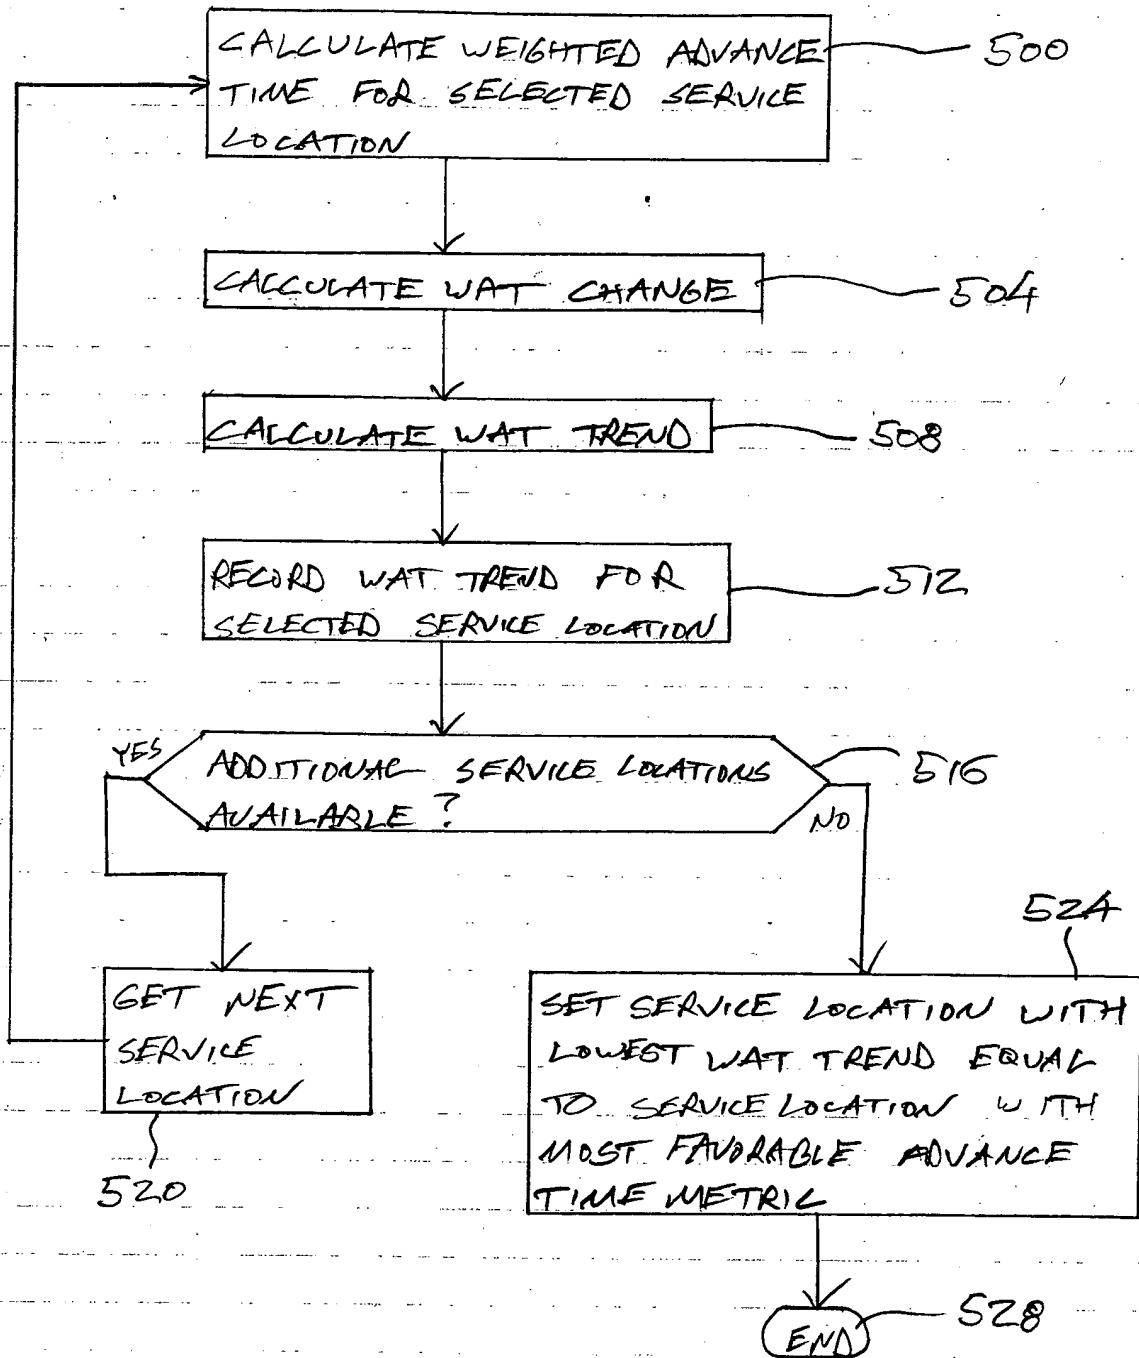 CALCULATE WEIGHTED ADVANCE
TIME FOR SELECTED SERVICE
LOCATION
500
CALCULATE WAT CHANGE
504
CALCULATE WAT TREND
508
RECORD WAT TREND FOR
SELECTED SERVICE LOCATION
512
YES
ADDITIONAL SERVICE LOCATIONS
AVAILABLE ?
516
NO
524
GET NEXT
SERVICE
LOCATION
520
SET SERVICE LOCATION WITH
LOWEST WAT TREND EQUAL
TO SERVICE LOCATION WITH
MOST FAVORABLE ADVANCE
TIME METRIC
END
528